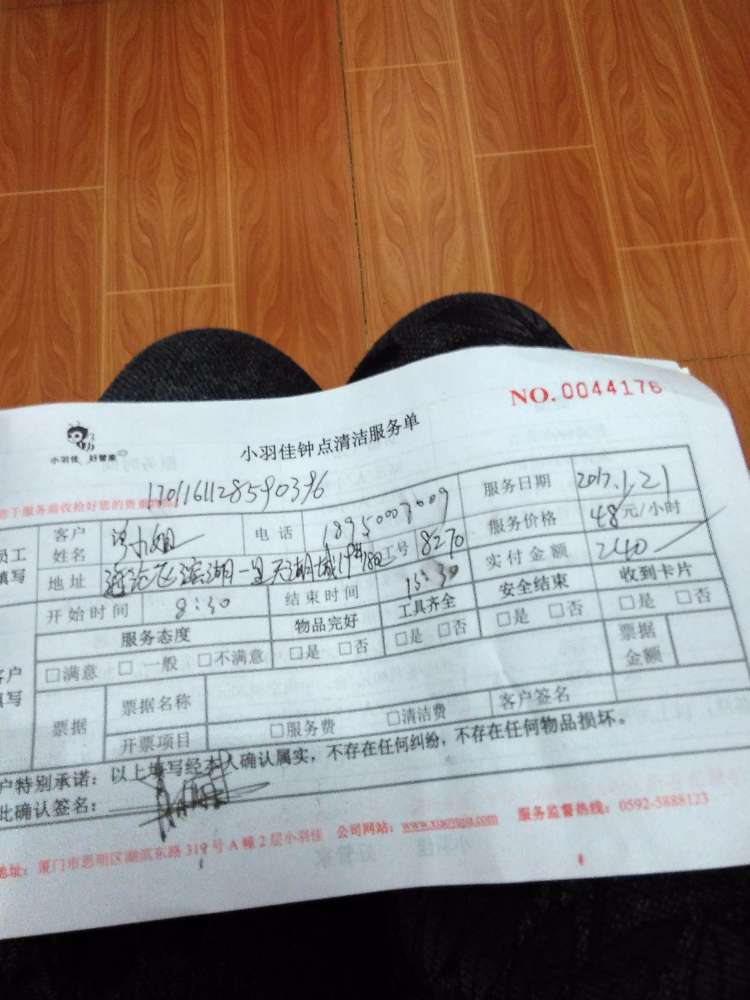 NO.0044176
小羽佳 好管家
小羽佳钟点清洁服务单
1701161128590396
服务前收检好您的贵重
员工填写 客户姓名 小姐 电话 服务日期 2017.1.21
服务价格 48元/小时
地址 湖一里天湖城 工号 8270 实付金额 240
开始时间 8:30 结束时间 13:30 安全结束 收到卡片
客户填写 服务态度 物品完好 工具齐全 □是 □否 □是 □否
□满意 □一般 □不满意 □是 □否 □是 □否 票据金额
票据 票据名称
开票项目 □服务费 □清洁费 客户签名
户特别承诺：以上填写经本人确认属实，不存在任何纠纷，不存在任何物品损坏。
此确认签名：
地址：厦门市思明区湖滨东路319号A幢2层小羽佳 公司网站：www.xiaoyujia.com 服务监督热线：0592-5888123